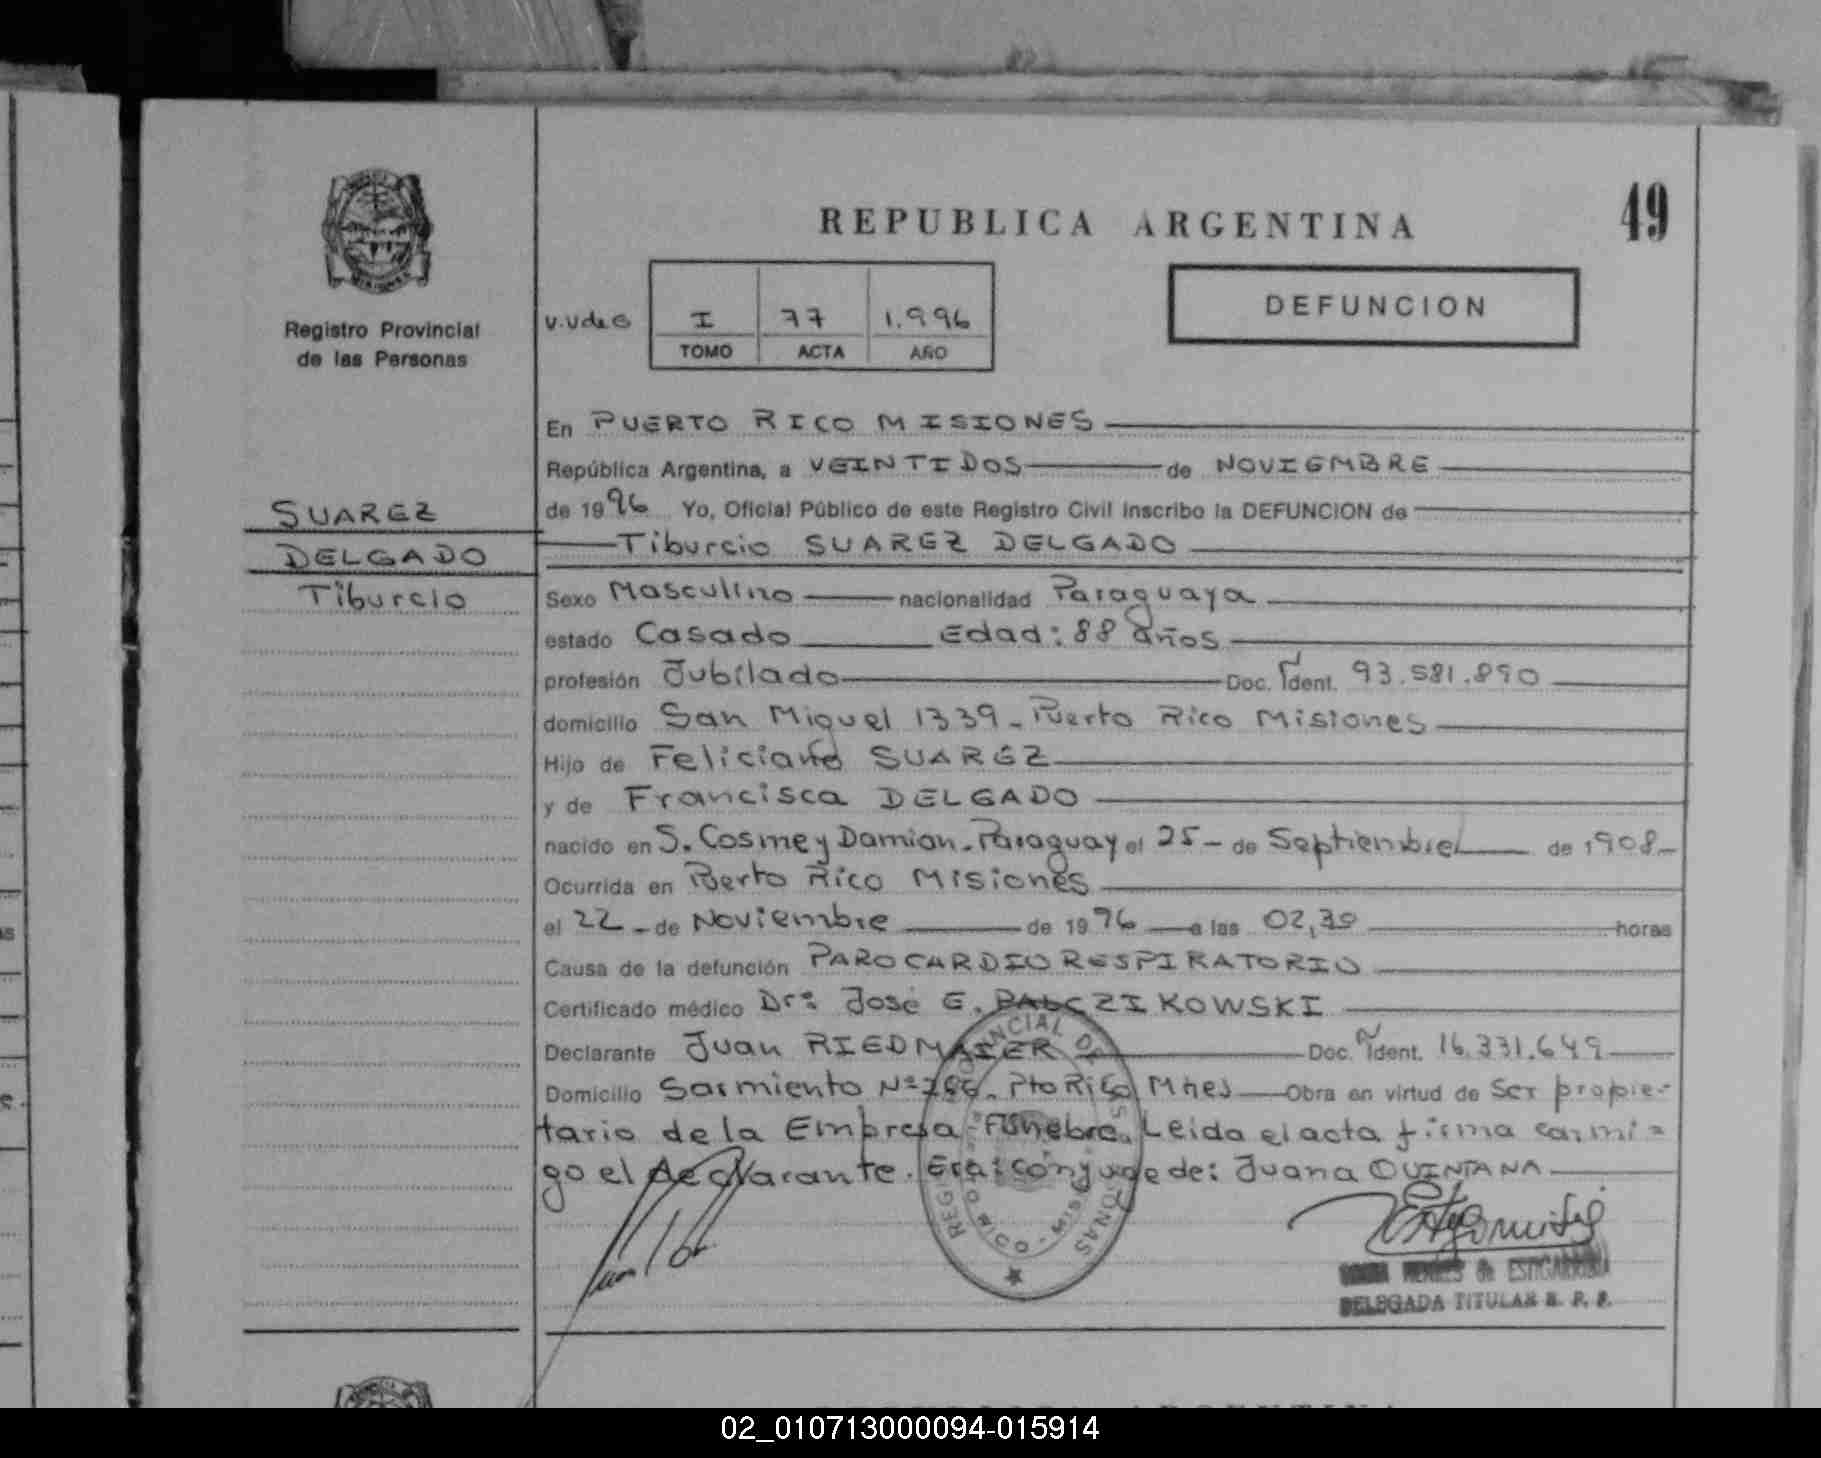 49
REPUBLICA ARGENTINA
DEFUNCION
Registro Provincial
de las Personas
I 77 1.996
TOMO ACTA AÑO
SUAREZ
DELGADO
Tiburcio
En PUERTO RICO MISIONES
República Argentina, a VEINTIDOS de NOVIEMBRE
de 1996 Yo, Oficial Público de este Registro Civil inscribo la DEFUNCION de
Tiburcio SUAREZ DELGADO
Sexo Masculino nacionalidad Paraguaya
estado Casado Edad: 88 años
profesión Jubilado Doc. Ident. 93.581.890
domicilio San Miguel 1339 - Puerto Rico Misiones
Hijo de Feliciano SUAREZ
y de Francisca DELGADO
nacido en S. Cosme y Damian - Paraguay el 25 - de Septiembre de 1908 -
Ocurrida en Puerto Rico Misiones
el 22 - de Noviembre de 1996 a las 02,30 horas
Causa de la defunción PAROCARDIORESPIRATORIO
Certificado médico Dr: José E. PALCZIKOWSKI
Declarante Juan RIEDMAIER Doc. Ident. 16.331.649
Domicilio Sarmiento Nº Pto Rico Mnes Obra en virtud de Ser propie-
tario de la Empresa Fúnebre. Leida el acta firma conmi=
go el declarante. Era: conyuge de: Juana QUINTANA
de ESTIGARRIBIA
DELEGADA TITULAR R. P. P.
02_010713000094-015914